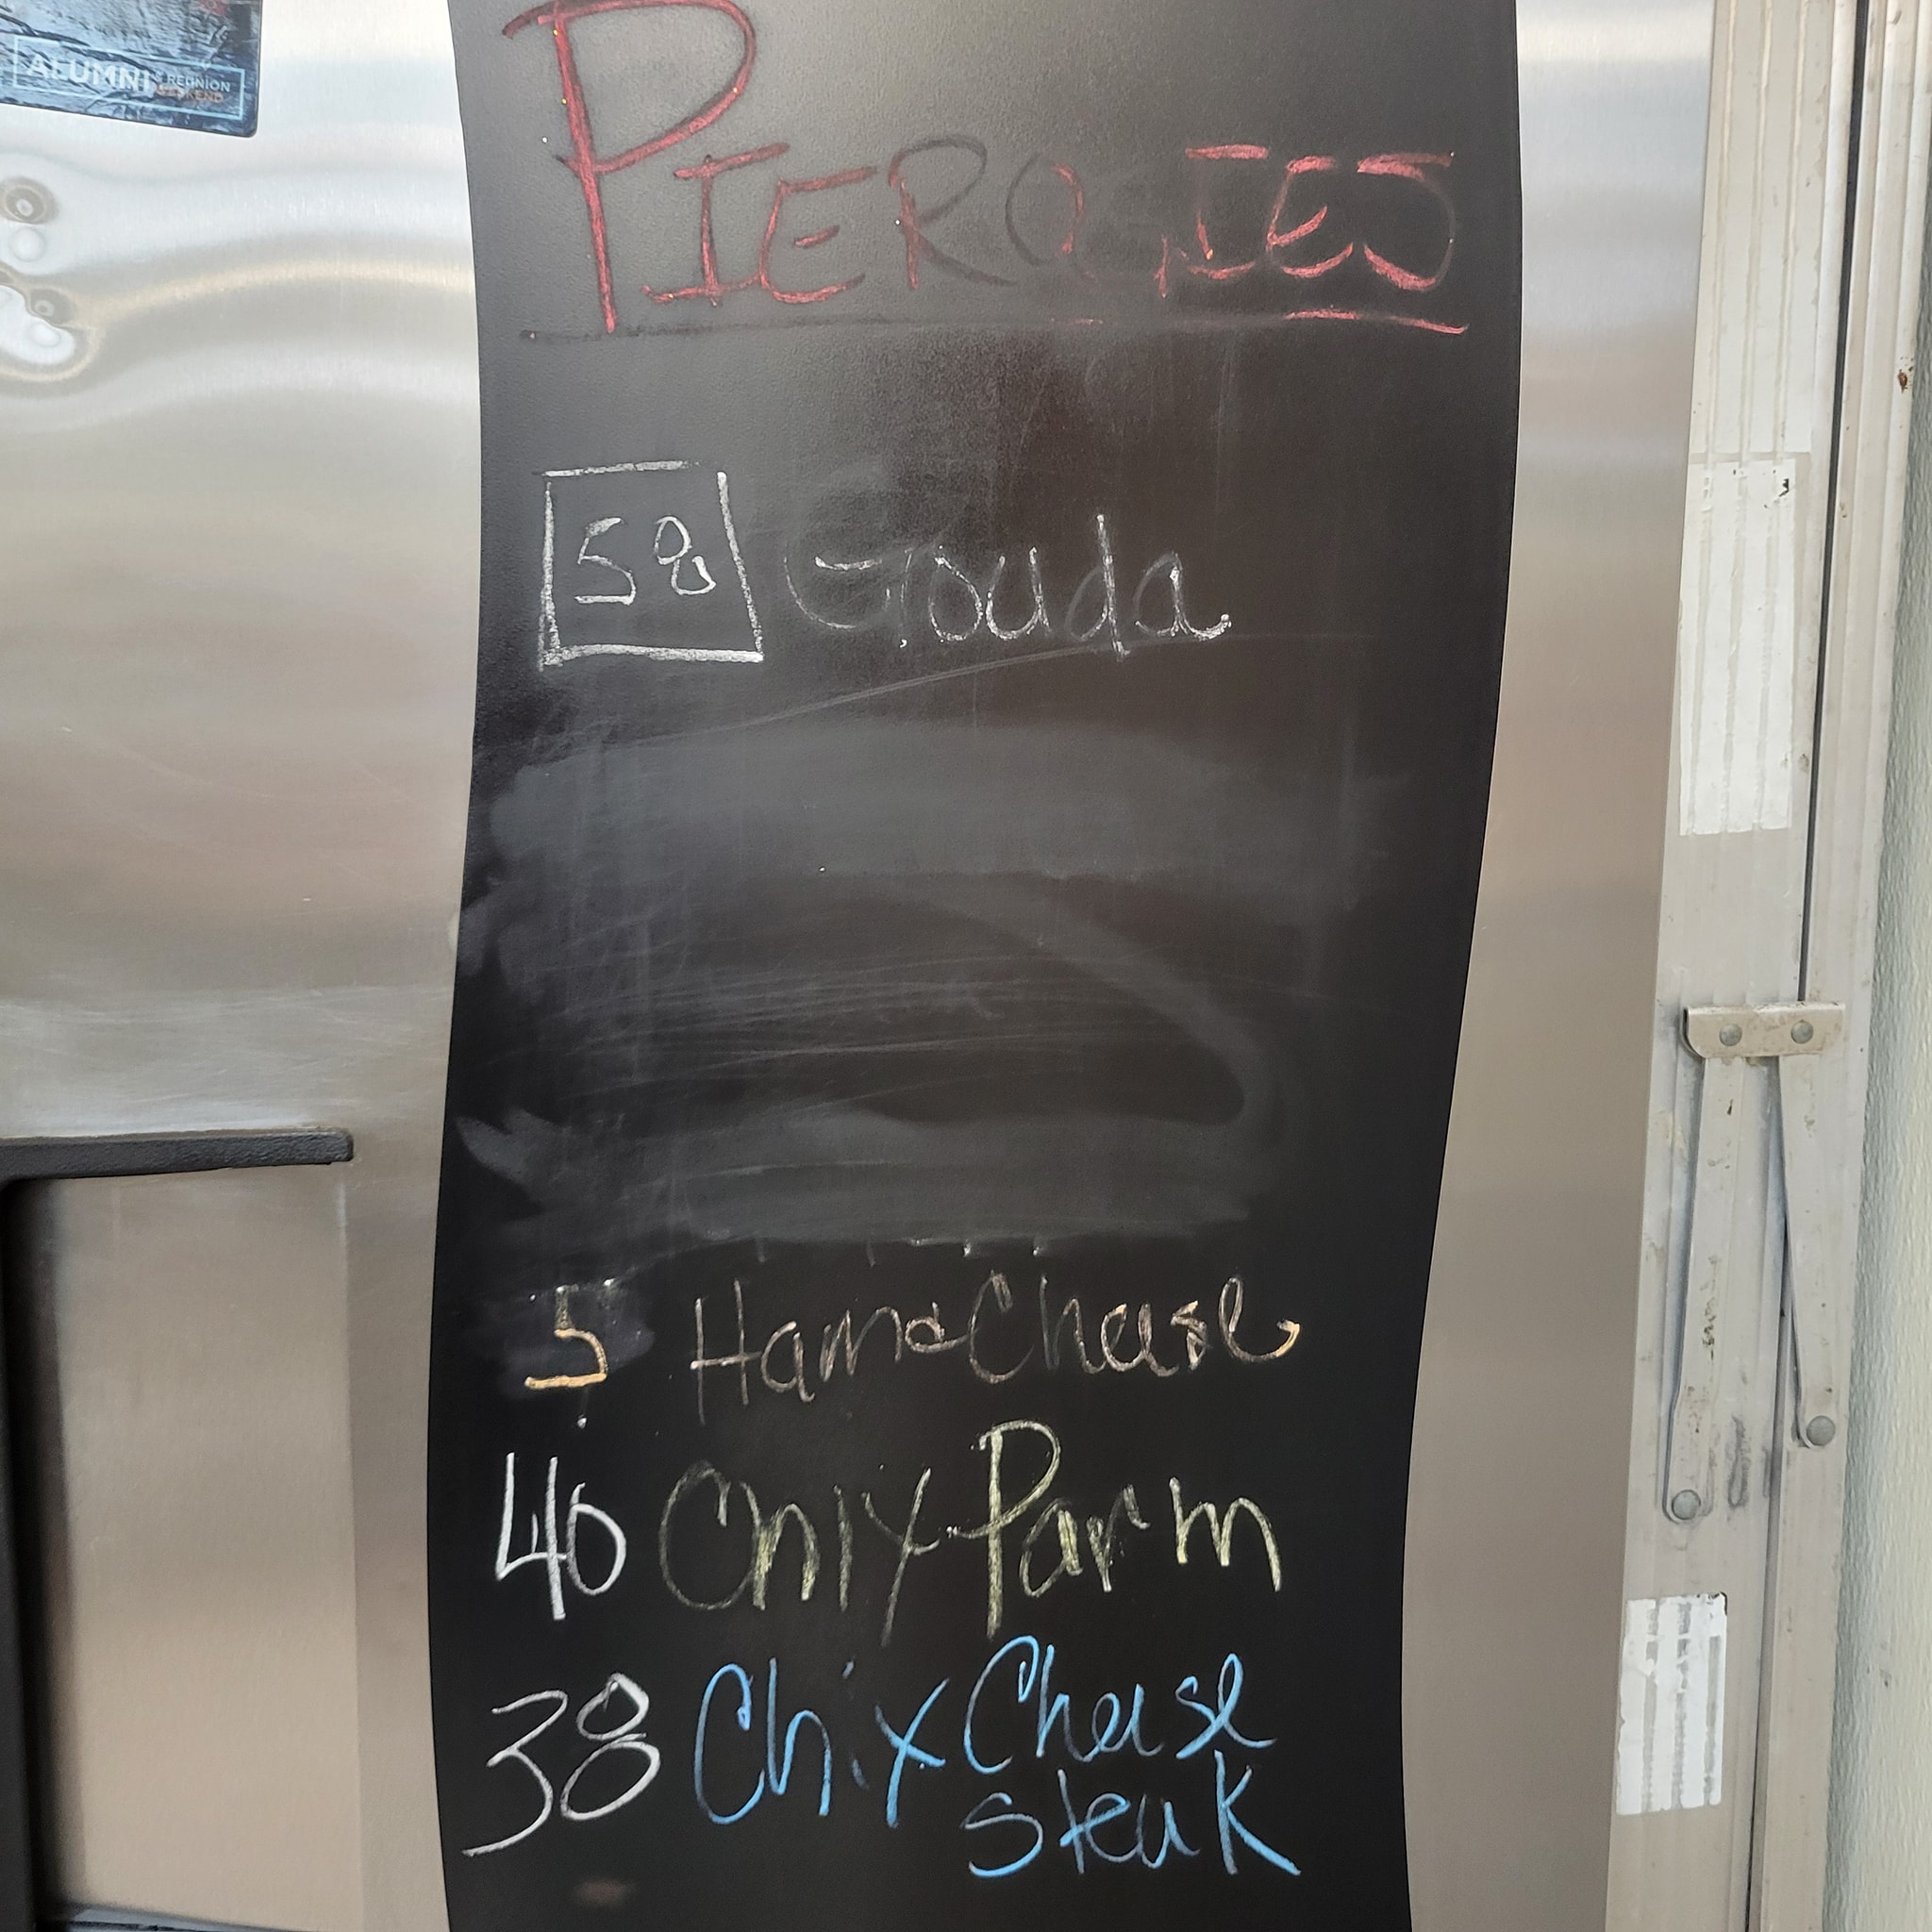 ALUMNI & REUNION
WEEKEND
PIEROGIES
58 Gouda
5 Ham & Cheese
40 Chix Parm
38 Chix Cheese
Steak